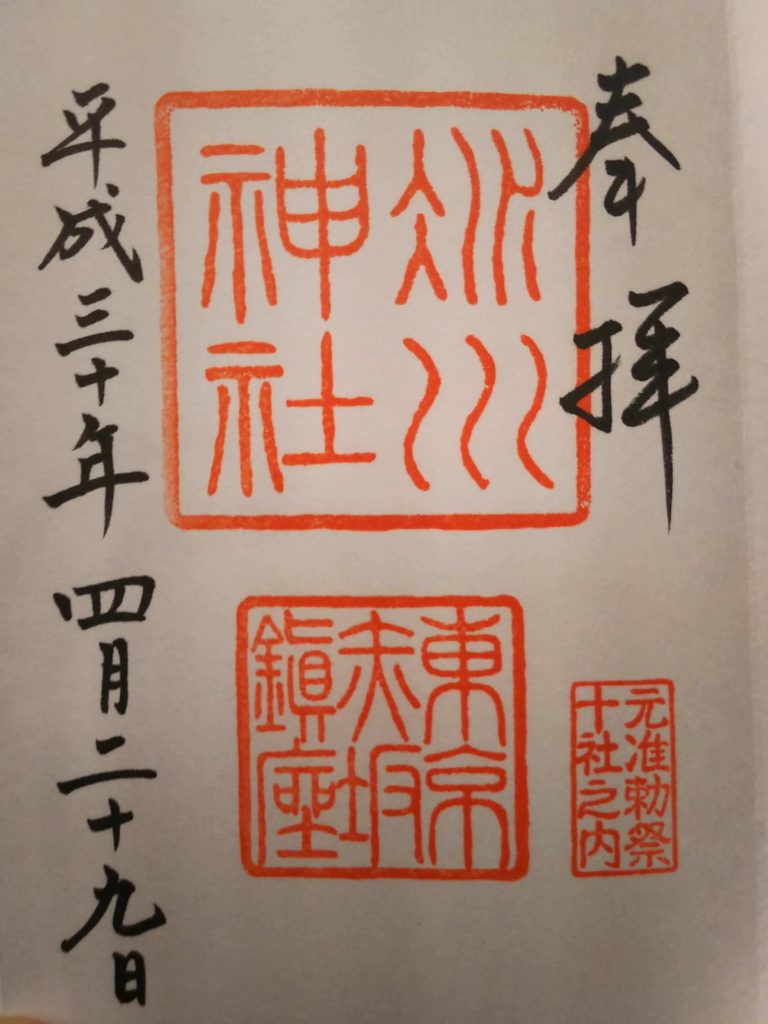 奉拝
氷川
神社
東京
赤坂
鎮座
元准勅祭
十社之内
平成三十年四月二十九日